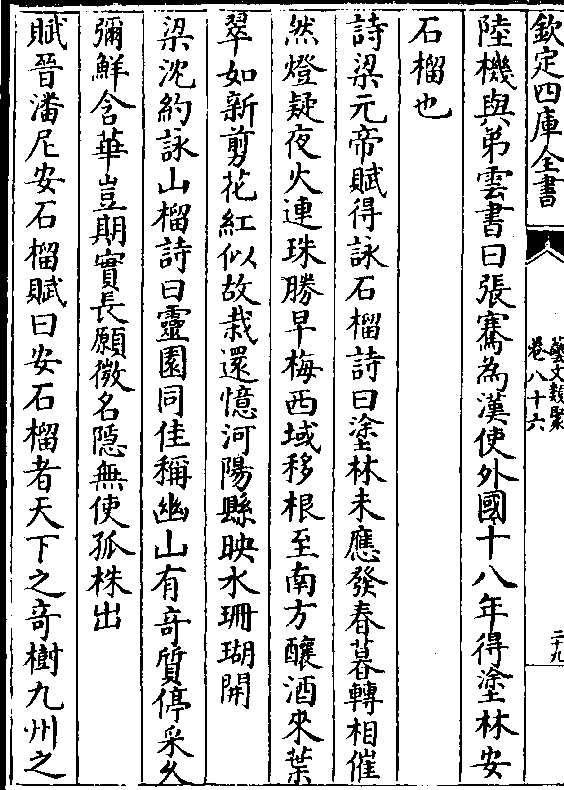 欽定四庫全書
藝文類聚
卷八十六
二十九
陸機與弟雲書曰張騫為漢使外國十八年得塗林安
石榴也
詩梁元帝賦得詠石榴詩曰塗林未應發春暮轉相催
然燈疑夜火連珠勝早梅西域移根至南方釀酒來葉
翠如新剪花紅似故栽還憶河陽縣映水珊瑚開
梁沈約詠山榴詩曰靈園同佳稱幽山有奇質停采久
彌鮮含華豈期實長願微名隱無使孤株出
賦晉潘尼安石榴賦曰安石榴者天下之奇樹九州之